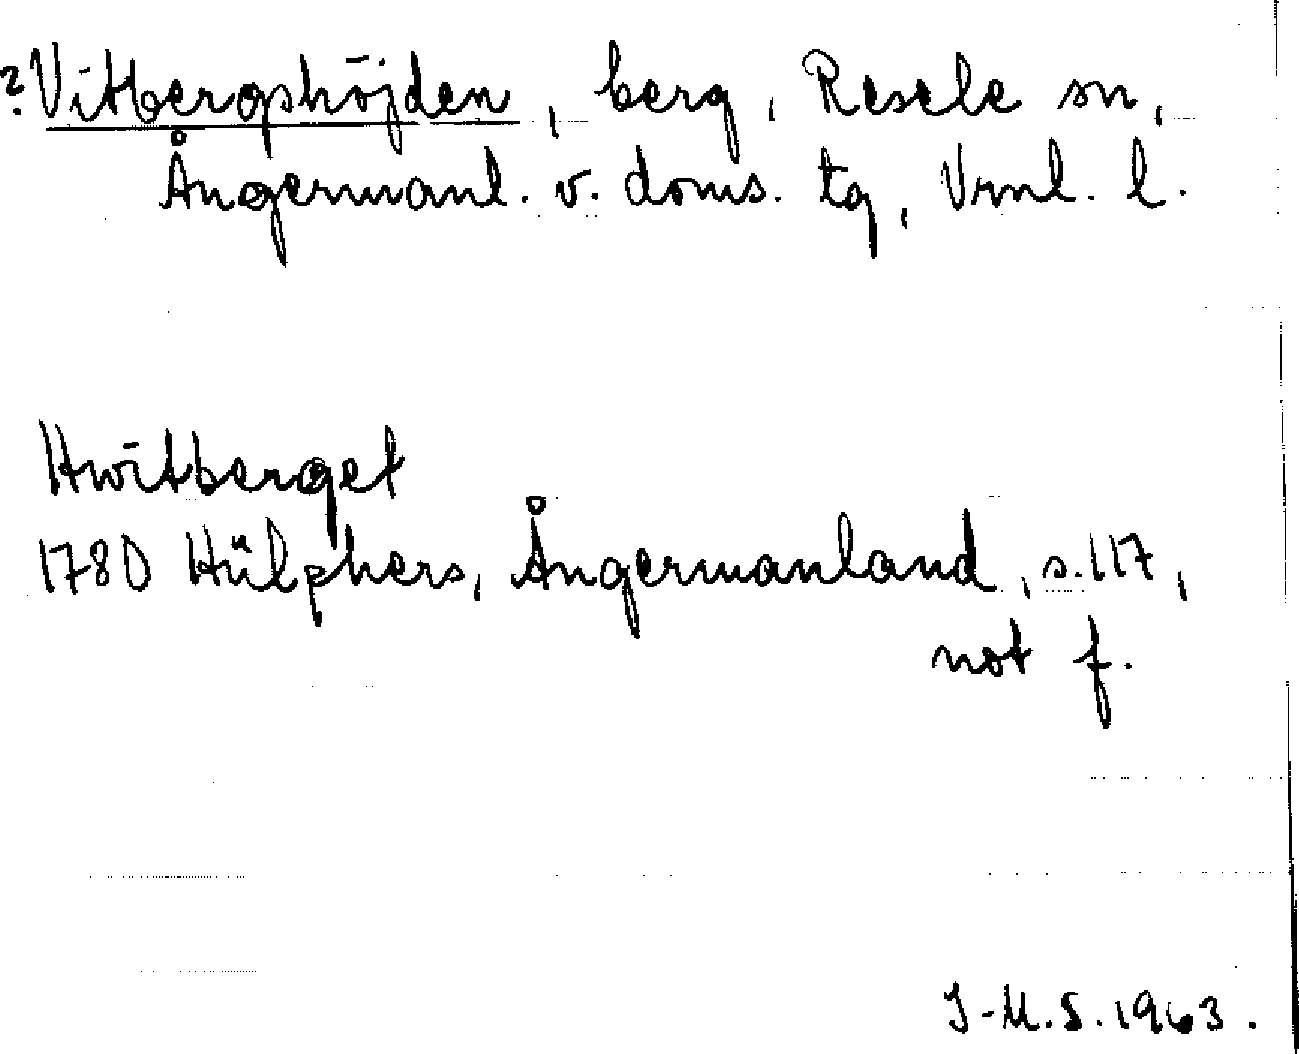 ? Vitbergshöjden, berg, Resele sn,
Ångermanl. v. doms. tg, Vrnl. l.
Hwitberget
1780 Hülphers, Ångermanland, s. 117,
not f.
I-M.S. 1963.